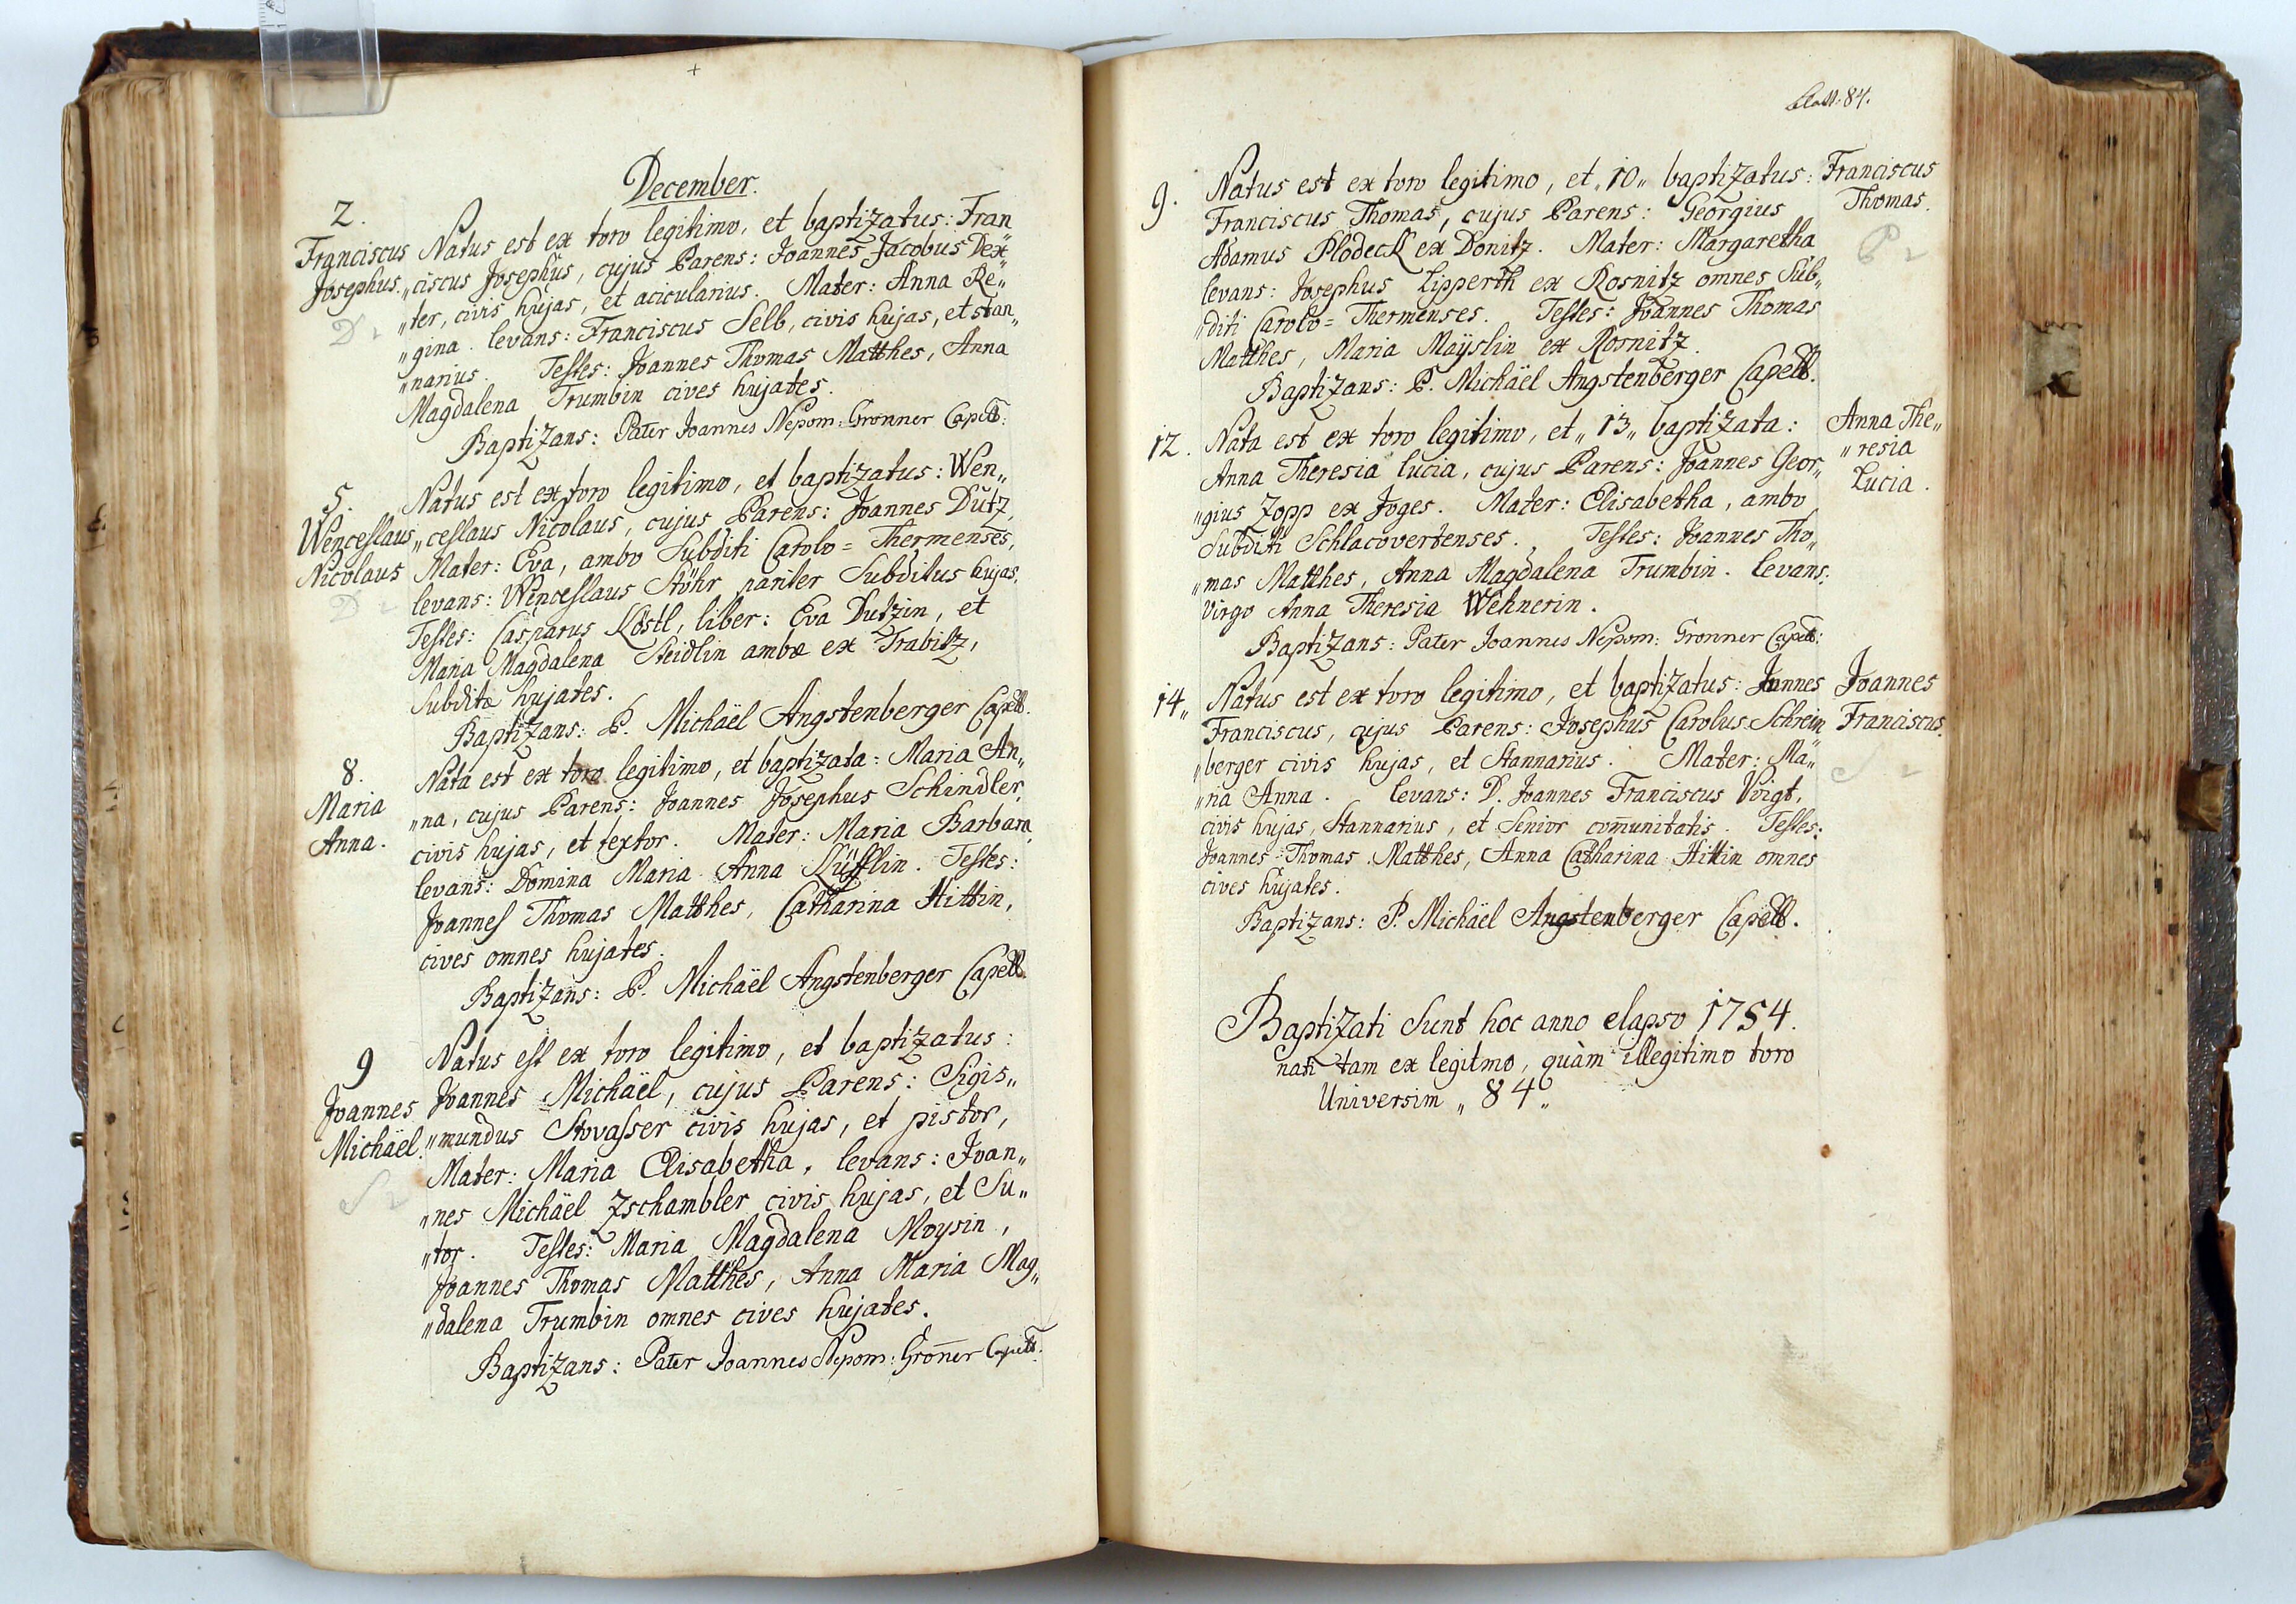 December.
2.
Franciscus
Josephus.
Natus est ex toro legitimo, et baptizatus: Fran
„ciscus Josephus, cujus Parens: Joannes Jacobus Dex„
„ter, civis hujas, et acicularius. Mater: Anna Re„
„gina. levans: Franciscus Selb, civis hujas, et stan„
„narius. Testes: Joannes Thomas Matthes, Anna
Magdalena Trumbin cives hujates.
Baptizans: Pater Joannes Nepom: Gronner Capell:
5.
Wenceslaus
Nicolaus
Natus est ex toro legitimo, et baptizatus: Wen„
„ceslaus Nicolaus, cujus Parens: Joannes Dutz,
Mater: Eva, ambo Subditi Carolo = Thermenses,
levans: Wenceslaus Stöhr pariter Subditus hujas.
Testes: Casparus Köstl, liber: Eva Dutzin, et
Maria Magdalena Steidlin ambæ ex Trabitz,
Subditæ hujates.
Baptizans: P. Michaël Angstenberger Capell.
8.
Maria
Anna.
Nata est ex toro legitimo, et baptizata: Maria An„
„na, cujus Parens: Joannes Josephus Schindler,
civis hujas, et textor. Mater: Maria Barbara,
levans: Domina Maria Anna Testes:
Joannes Thomas Matthes, Catharina Hittin,
cives omnes hujates.
Baptizans: P. Michaël Angstenberger Capell.
9
Joannes
Michaël.
Natus est ex toro legitimo, et baptizatus:
Joannes Michaël, cujus Parens: Sigis„
„mundus Stovasser civis hujas, et pistor,
Mater: Maria Elisabetha, levans: Joan„
„nes Michaël Zschambler civis hujas, et Su„
„tor. Testes: Maria Magdalena Moysin,
Joannes Thomas Matthes, Anna Maria Mag„
„dalena Trumbin omnes cives hujates.
Baptizans: Pater Joannes Nepom: Gron̄er Capell.
84.
9.
Natus est ex toro legitimo, et „10„ baptizatus:
Franciscus Thomas, cujus Parens: Georgius
Adamus Plodeck ex Donitz. Mater: Margaretha
levans: Josephus Lipperth ex Rosnitz omnes Sub„
„diti Carolo = Thermenses. Testes: Joannes Thomas
Matthes, Maria Maÿslin ex Rosnitz.
Baptizans: P. Michaël Angstenberger Capell.
Franciscus
Thomas.
12.
Nata est ex toro legitimo, et „13„ baptizata:
Anna Theresia lucia, cujus Parens: Joannes Geor„
„gius Zopp ex Joges. Mater: Elisabetha, ambo
Subditi Schlacoverdenses. Testes: Joannes Tho„
„mas Matthes, Anna Magdalena Trumbin. levans:
Virgo Anna Theresia Wehnerin.
Baptizans: Pater Joannes Nepom: Gronner Capell:
Anna The„
„resia
Lucia.
14„
Natus est ex toro legitimo, et baptizatus: Joannes
Franciscus, cujus Parens: Josephus Carolus Schrein
„berger civis hujas, et Stannarius. Mater: Ma„
„ria Anna. levans: D. Joannes Franciscus Voigt,
civis hujas, Stannarius, et Senior com̄unitatis. Testes:
Joannes Thomas Matthes, Anna Catharina Hittin omnes
cives hujates.
Baptizans: P. Michaël Angstenberger Capell.
Joannes
Franciscus.
Baptizati Sunt hoc anno elapso 1754.
nati tam ex legitmo, quàm illegitimo toro
Universim „84„